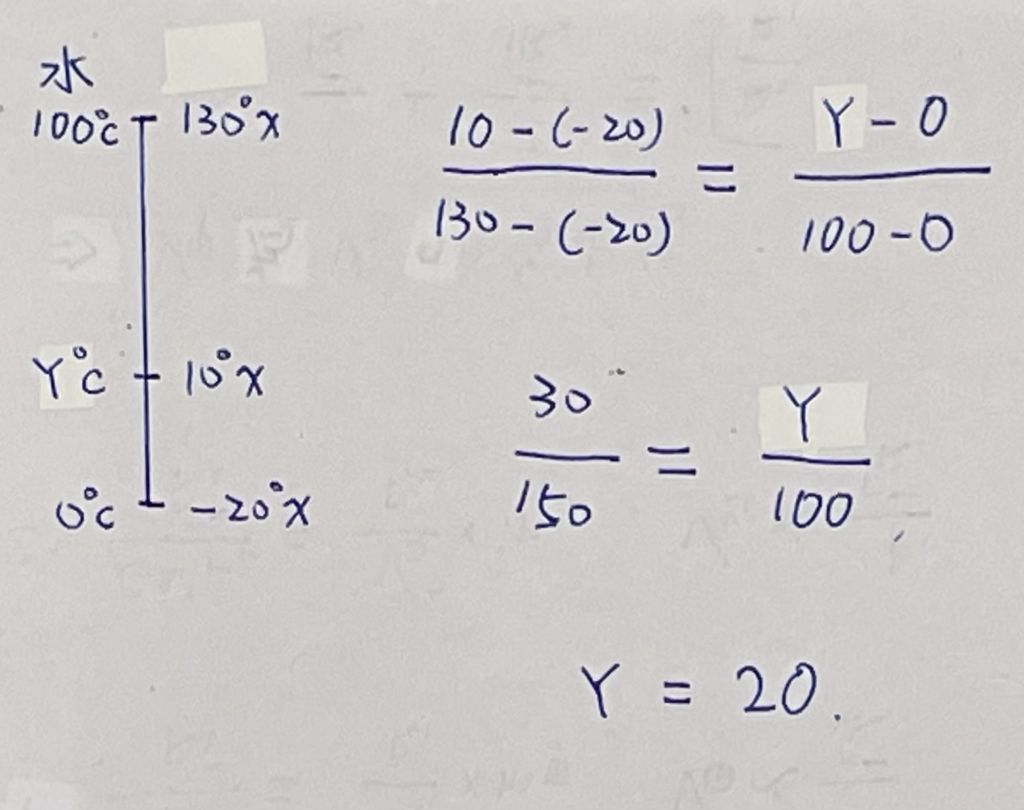 水
100°C 130°X
Y°C 10°X
0°C -20°X
10-(-20) / 130-(-20) = Y-0 / 100-0
30 / 150 = Y / 100
Y = 20.